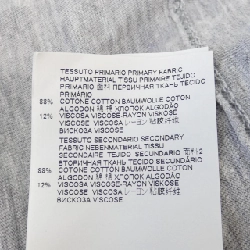 TESSUTO PRIMARIO PRIMARY FABRIC
HAUPTMATERIAL TISSU PRIMAIRE TEJIDO
PRIMARIO 面料 ПЕРВИЧНАЯ ТКАНЬ TECIDO
PRIMÁRIO
88% COTONE COTTON BAUMWOLLE COTON
ALGODON 棉 綿 ХЛОПОК ALGODÃO
12% VISCOSA VISCOSE-RAYON VISKOSE
VISCOSE VISCOSA レーヨン 粘胶纤维
ВИСКОЗА VISCOSE
TESSUTO SECONDARIO SECONDARY
FABRIC NEBENMATERIAL TISSU
SECONDAIRE TEJIDO SECUNDARIO
ВТОРИЧНАЯ ТКАНЬ TECIDO SECUNDÁRIO
88% COTONE COTTON BAUMWOLLE COTON
ALGODON 棉 綿 ХЛОПОК ALGODÃO
12% VISCOSA VISCOSE-RAYON VISKOSE
VISCOSE VISCOSA レーヨン 粘胶纤维
ВИСКОЗА VISCOSE